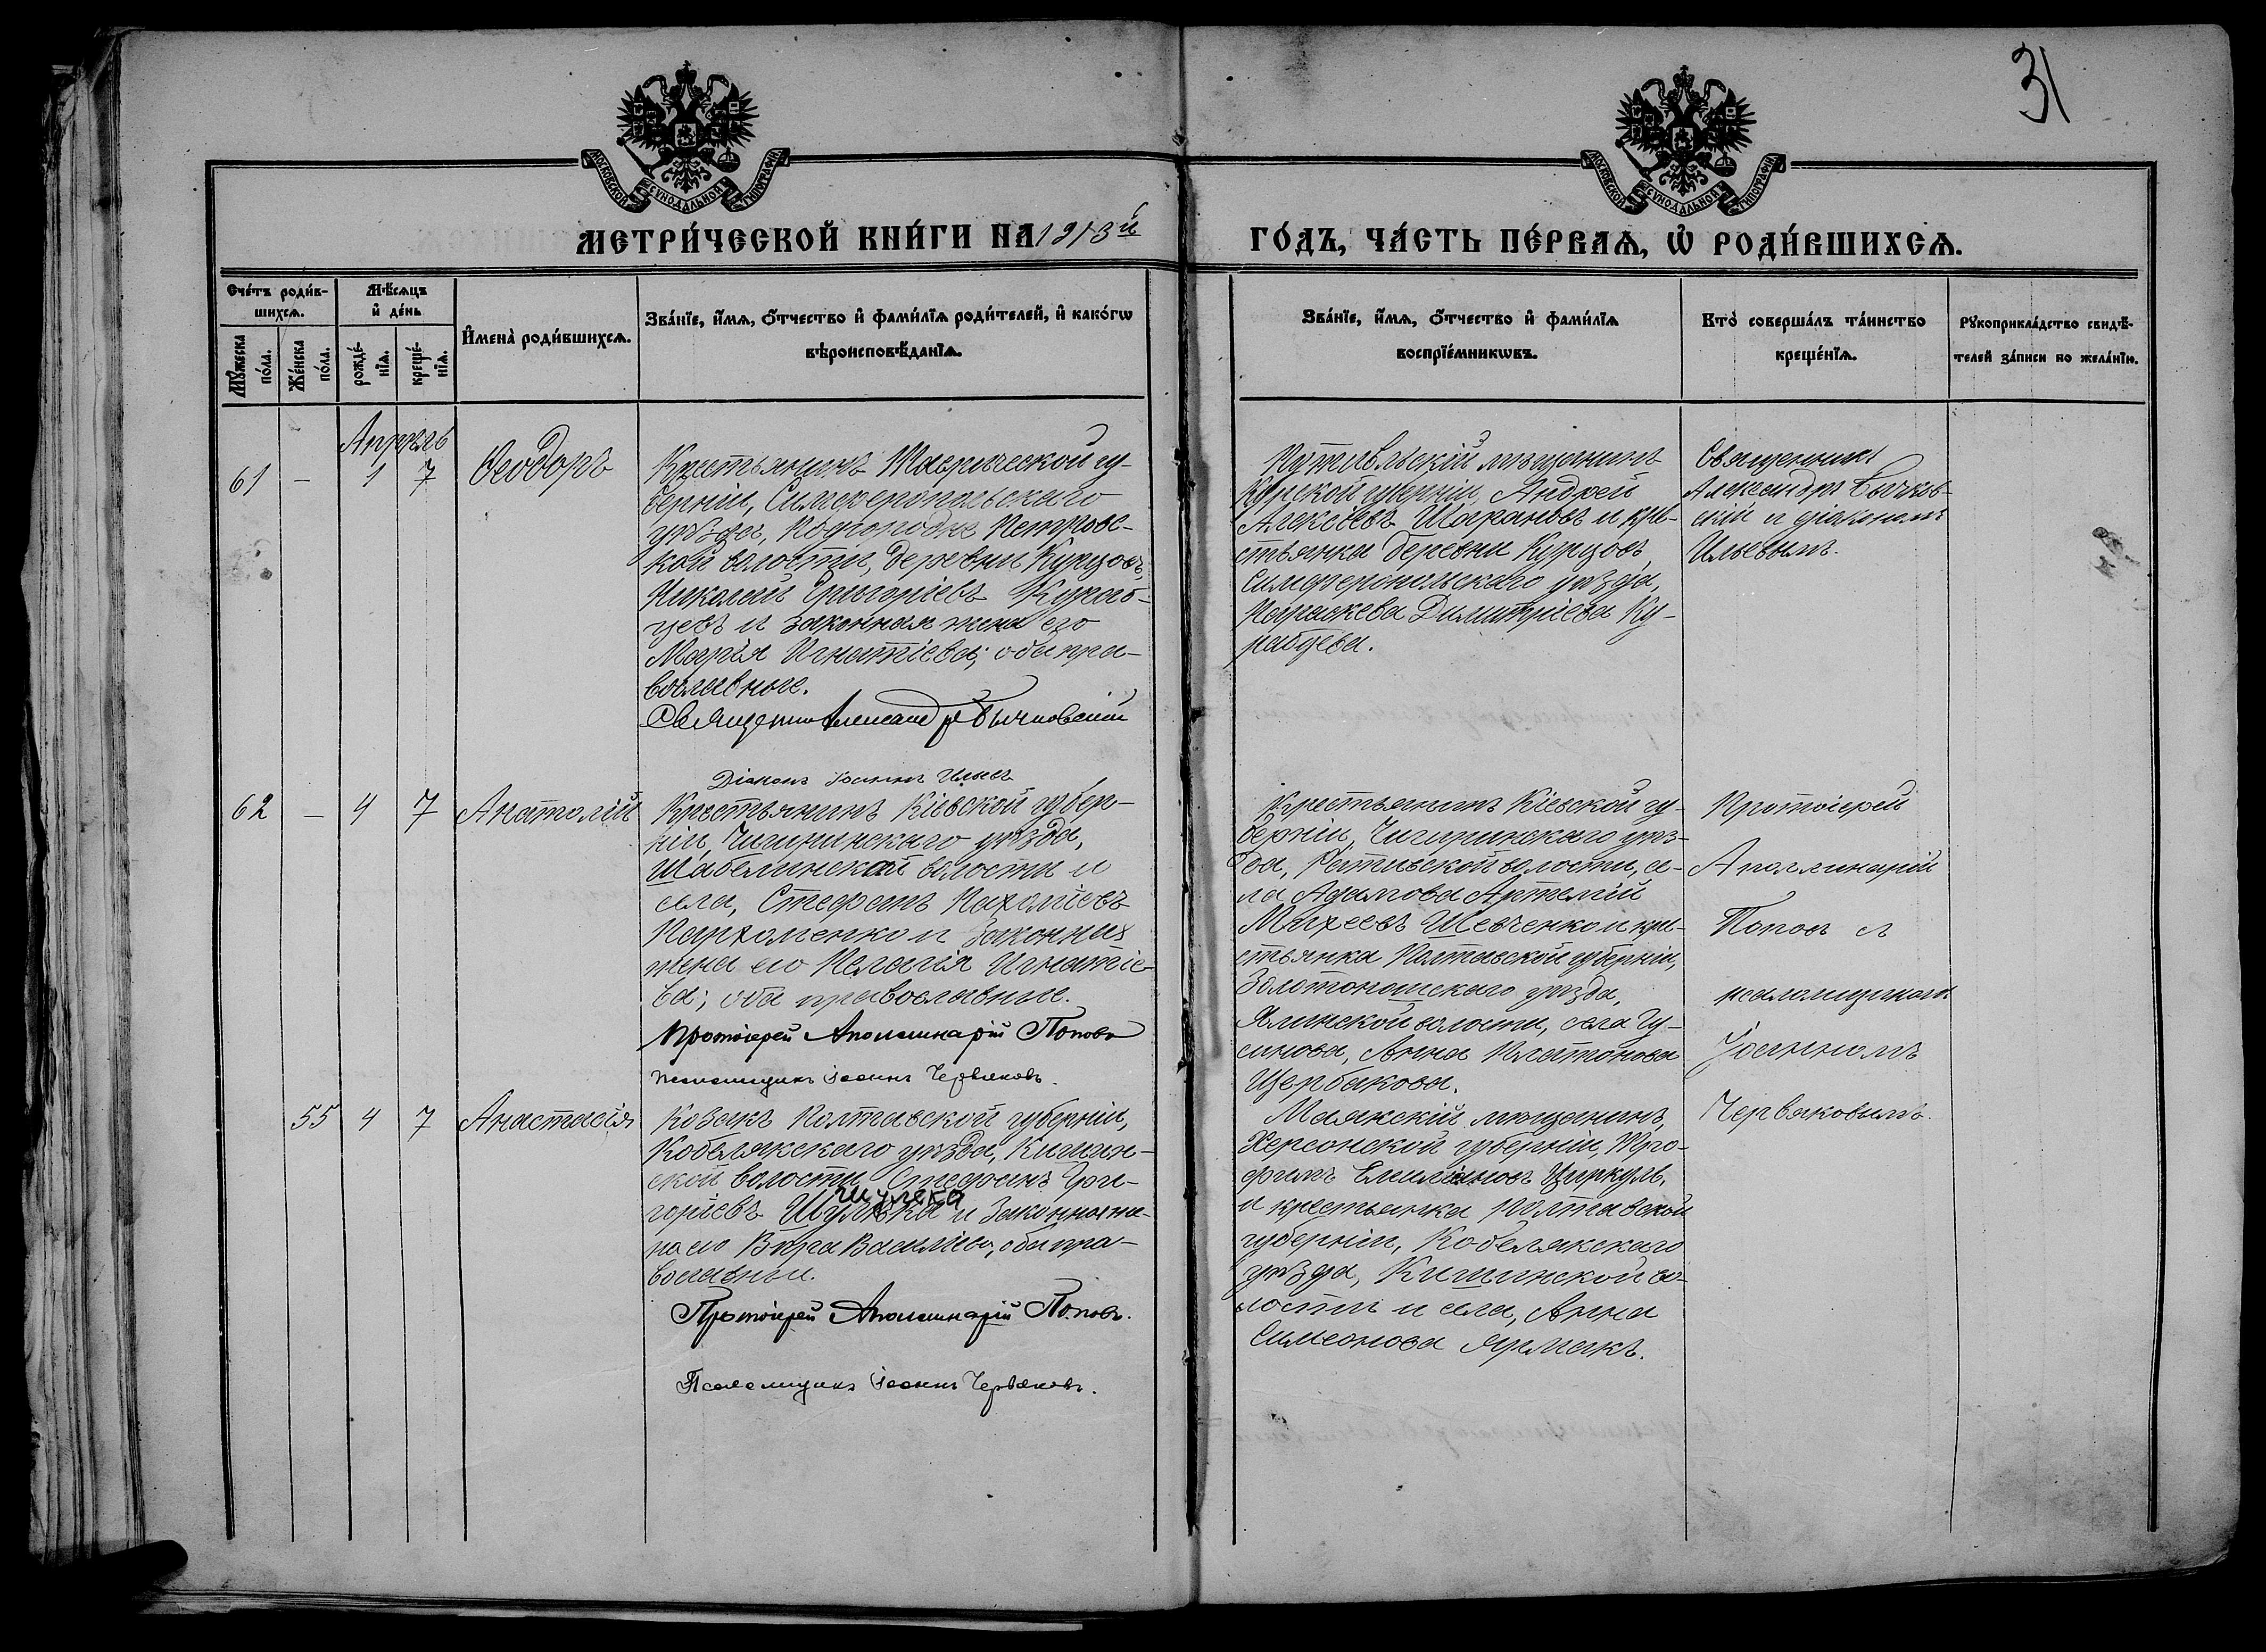 31
МОСКОВСКОЙ СѴНОДАЛЬНОЙ ТИПОГРАФІИ
МОСКОВСКОЙ СѴНОДАЛЬНОЙ ТИПОГРАФІИ
МЕТРИ́ЧЕСКОЙ КНИ́ГИ НА 1913й
ГО́ДЪ, ЧА́СТЬ ПЕ́РВАѦ, Ѡ҆ РОДИ́ВШИХСѦ.
Сче́тъ роди́в-
шихсѧ.
Мѣ́сѧцъ
и҆ де́нь
Мꙋ́жеска
по́ла.
Же́нска
по́ла.
рожде́-
нїѧ.
креще́-
нїѧ.
И҆мена̀ роди́вшихсѧ.
Зва́нїе, и҆́мѧ, ѻ҆́тчество и҆ фами́лїѧ роди́телей, и҆ како́гѡ
вѣроисповѣ́данїѧ.
Зва́нїе, и҆́мѧ, ѻ҆́тчество и҆ фами́лїѧ
воспрїе́мникѡвъ.
Кто̀ соверша́лъ та́инство
креще́нїѧ.
Рꙋкоприкла́дство свидѣ́-
телей за́писи по жела́нїю.
Апрѣль
61 – 1 7 Ѳеодоръ
Крестьянинъ Таврической гу-
берніи, Симферопольскаго
уѣзда, Подгородне Петровс-
кой волости, деревни Курцовъ,
Николай Григоріевъ Кураб-
цевъ и законная жена его
Марія Игнатіева; оба пра-
вославные.
Священникъ Александръ Бычковскій
Діаконъ Іоаннъ Ильевъ
Путивльскій мѣщанинъ
Курской губерніи Андрей
Алексѣевъ Шарановъ и кре-
стьянка деревни Курцовъ
Симферопольскаго уѣзда,
Параскева Димитріева Ку-
рабцева.
Священникъ
Александръ Бычков-
скій и діакономъ
Ильевымъ.
62 – 4 7 Анатолій
Крестьянинъ Кіевской губер-
ніи, Чигиринскаго уѣзда,
Шабелинской волости и
села, Стефанъ Пахоміевъ
Пархоменко и законная
жена его Пелагія Игнатіе-
ва; оба православные.
Протоіерей Аполлинарій Поповъ
Псаломщикъ Іоаннъ Червяковъ.
Крестьянинъ Кіевской гу-
берніи, Чигиринскаго уѣз-
да, Ратиевской волости, се-
ла Адамова Артемій
Михеевъ Шевченко и кре-
стьянка Полтавской губерніи,
Золотоношскаго уѣзда,
волости, села Гу-
синова, Анна Платонова
Щербакова.
Протоіерей
Аполлинарій
Поповъ съ
псаломщикомъ
Іоанномъ
Червяковымъ.
55 4 7 Анастасія
Козакъ Полтавской губерніи,
Кобелякскаго уѣзда, Кишин-
ской волости Стефанъ Гри-
горіевъ Шулека и законная же-
на его Вѣра Васильева, оба пра-
вославны.
Протоіерей Аполлинарій Поповъ.
Псаломщикъ Іоаннъ Червяковъ.
Маякскій мѣщанинъ,
Херсонской губерніи, Тро-
фимъ Емиліановъ Циркуль,
и крестьянка Полтавской
губерніи, Кобелякскаго
уѣзда, Кишинской во-
лости и села, Анна
Симеонова Ярмакъ.